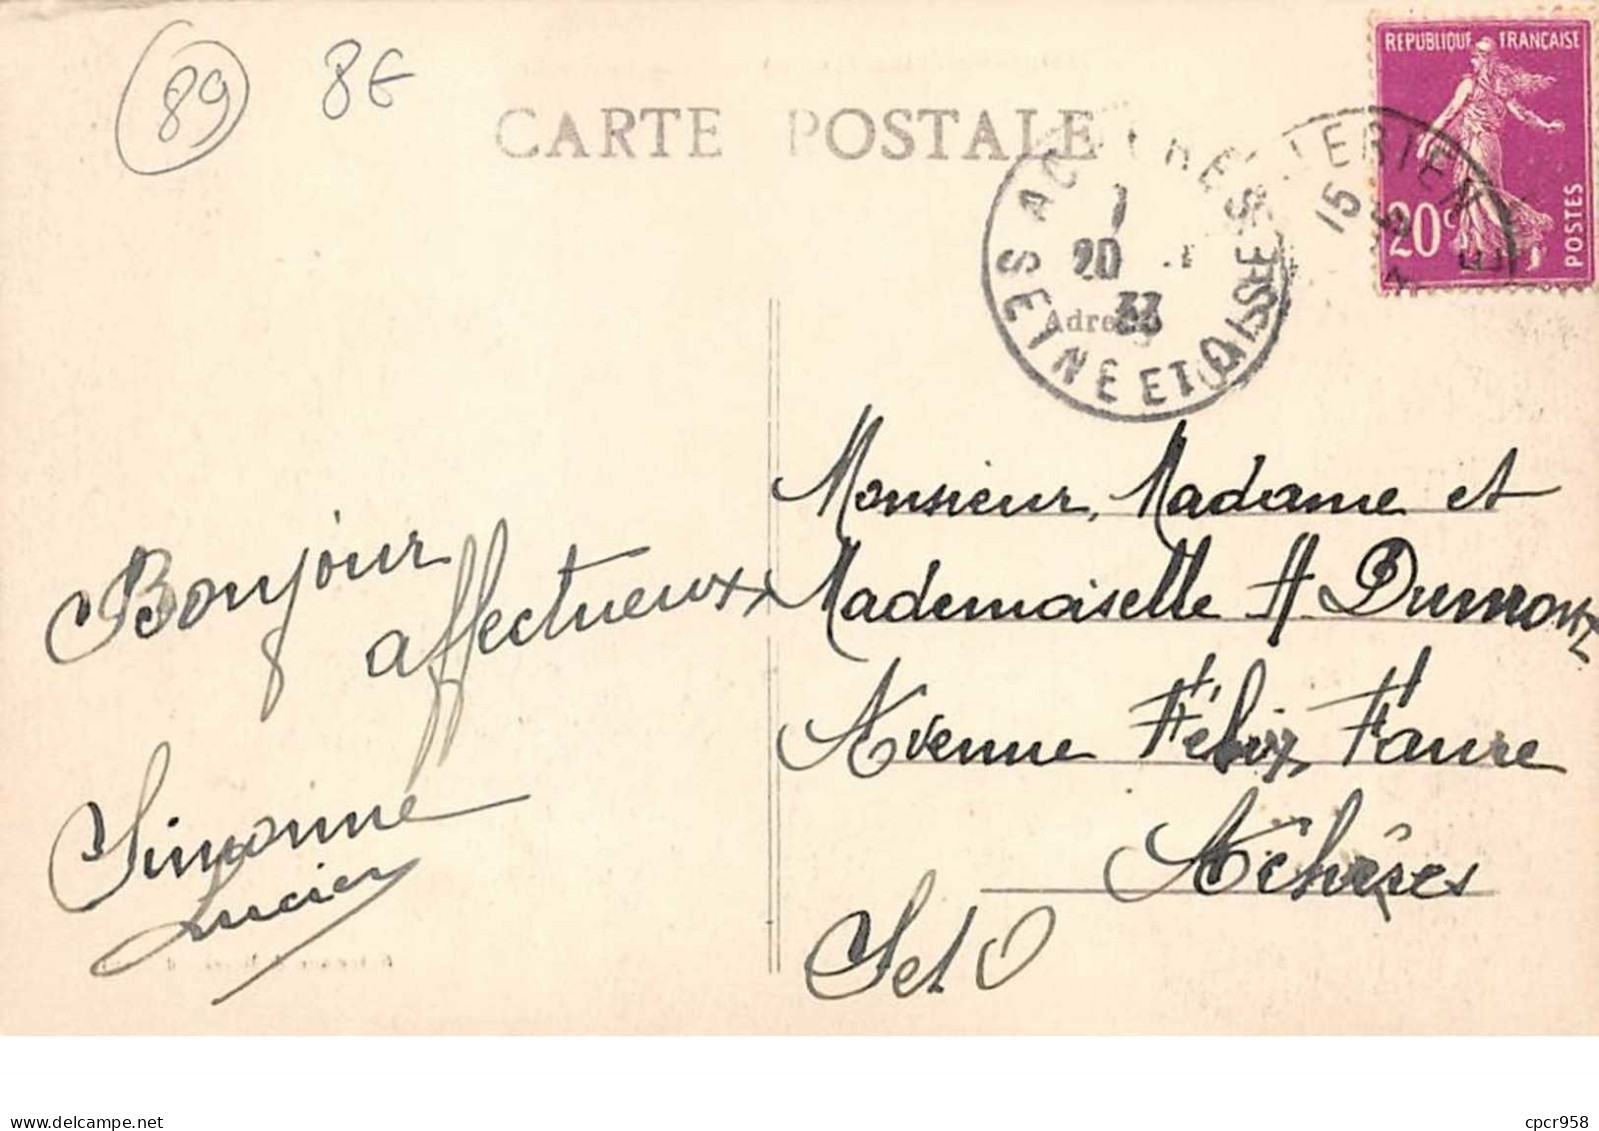 89 8€
CARTE POSTALE
REPUBLIQUE FRANCAISE
20c POSTES
ACHERES
SEINE ET OISE
20
33
15
Adresse
Monsieur, Madame et
Mademoiselle A. Dumont
Avenue Félix Faure
Achères
S et O
Bonjour
affectueux
Simonne
Lucien
delcampe.net
cpcr958